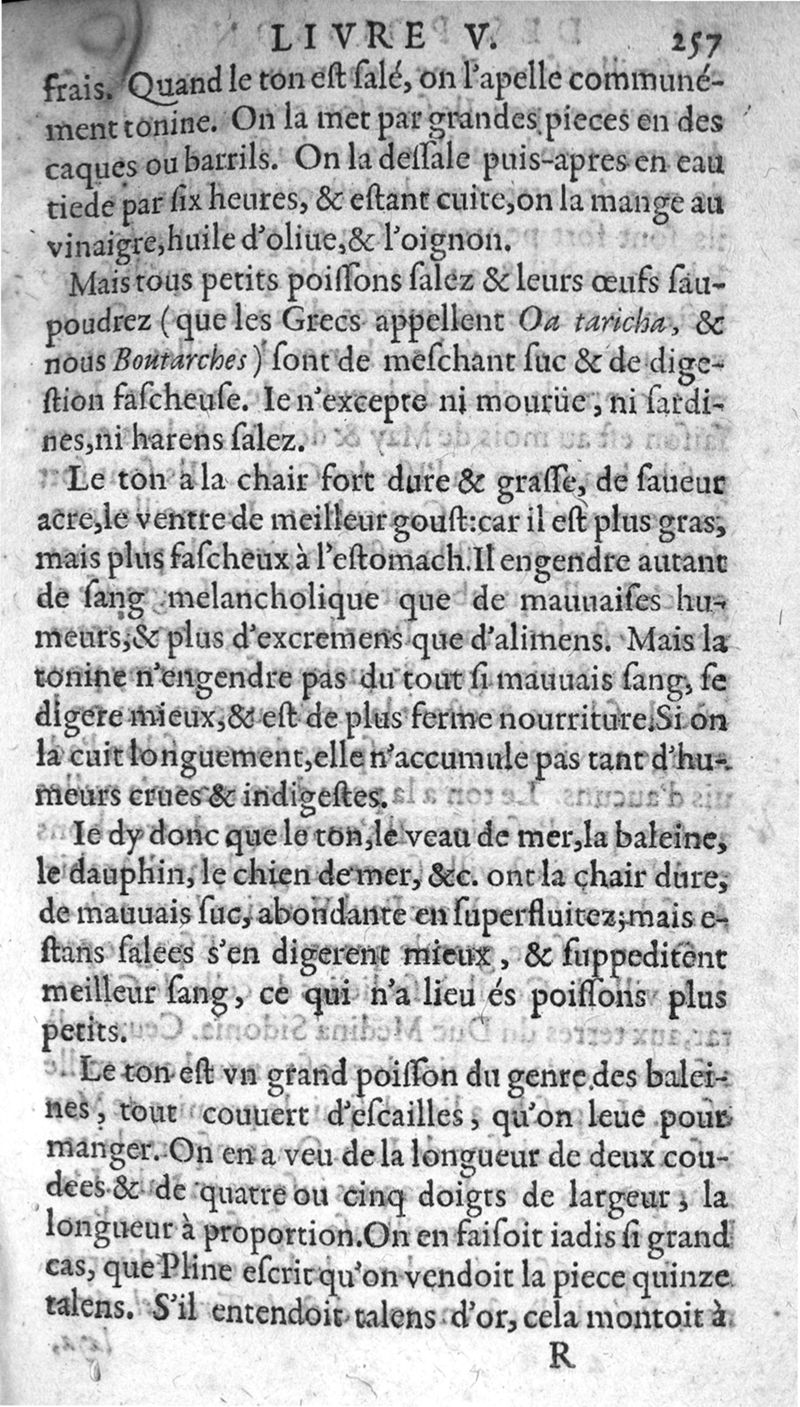 LIVRE V. 257
frais. Quand le ton eſt ſalé, on l'apelle communé-
ment tonine. On la met par grandes pieces en des
caques ou barrils. On la deſſale puis-apres en eau
tiede par ſix heures, & eſtant cuite, on la mange au
vinaigre, huile d'oliue, & l'oignon.
Mais tous petits poiſſons ſalez & leurs œufs ſau-
poudrez (que les Grecs appellent Oa taricha, &
nous Boutarches) ſont de meſchant ſuc & de dige-
ſtion faſcheuſe. Ie n'excepte ni mourüe, ni ſardi-
nes, ni harens ſalez.
Le ton a la chair fort dure & graſſe, de ſaueur
acre, le ventre de meilleur gouſt: car il eſt plus gras,
mais plus faſcheux à l'eſtomach. Il engendre autant
de ſang melancholique que de mauuaiſes hu-
meurs, & plus d'excremens que d'alimens. Mais la
tonine n'engendre pas du tout ſi mauuais ſang, ſe
digere mieux, & eſt de plus ferme nourriture. Si on
la cuit longuement, elle n'accumule pas tant d'hu-
meurs crues & indigeſtes.
Ie dy donc que le ton, le veau de mer, la baleine,
le dauphin, le chien de mer, &c. ont la chair dure,
de mauuais ſuc, abondante en ſuperfluitez; mais e-
ſtans ſalees s'en digerent mieux, & ſuppeditent
meilleur ſang, ce qui n'a lieu és poiſſons plus
petits.
Le ton eſt vn grand poiſſon du genre des balei-
nes, tout couuert d'eſcailles, qu'on leue pour
manger. On en a veu de la longueur de deux cou-
dees & de quatre ou cinq doigts de largeur, la
longueur à proportion. On en faiſoit iadis ſi grand
cas, que Pline eſcrit qu'on vendoit la piece quinze
talens. S'il entendoit talens d'or, cela montoit à
R